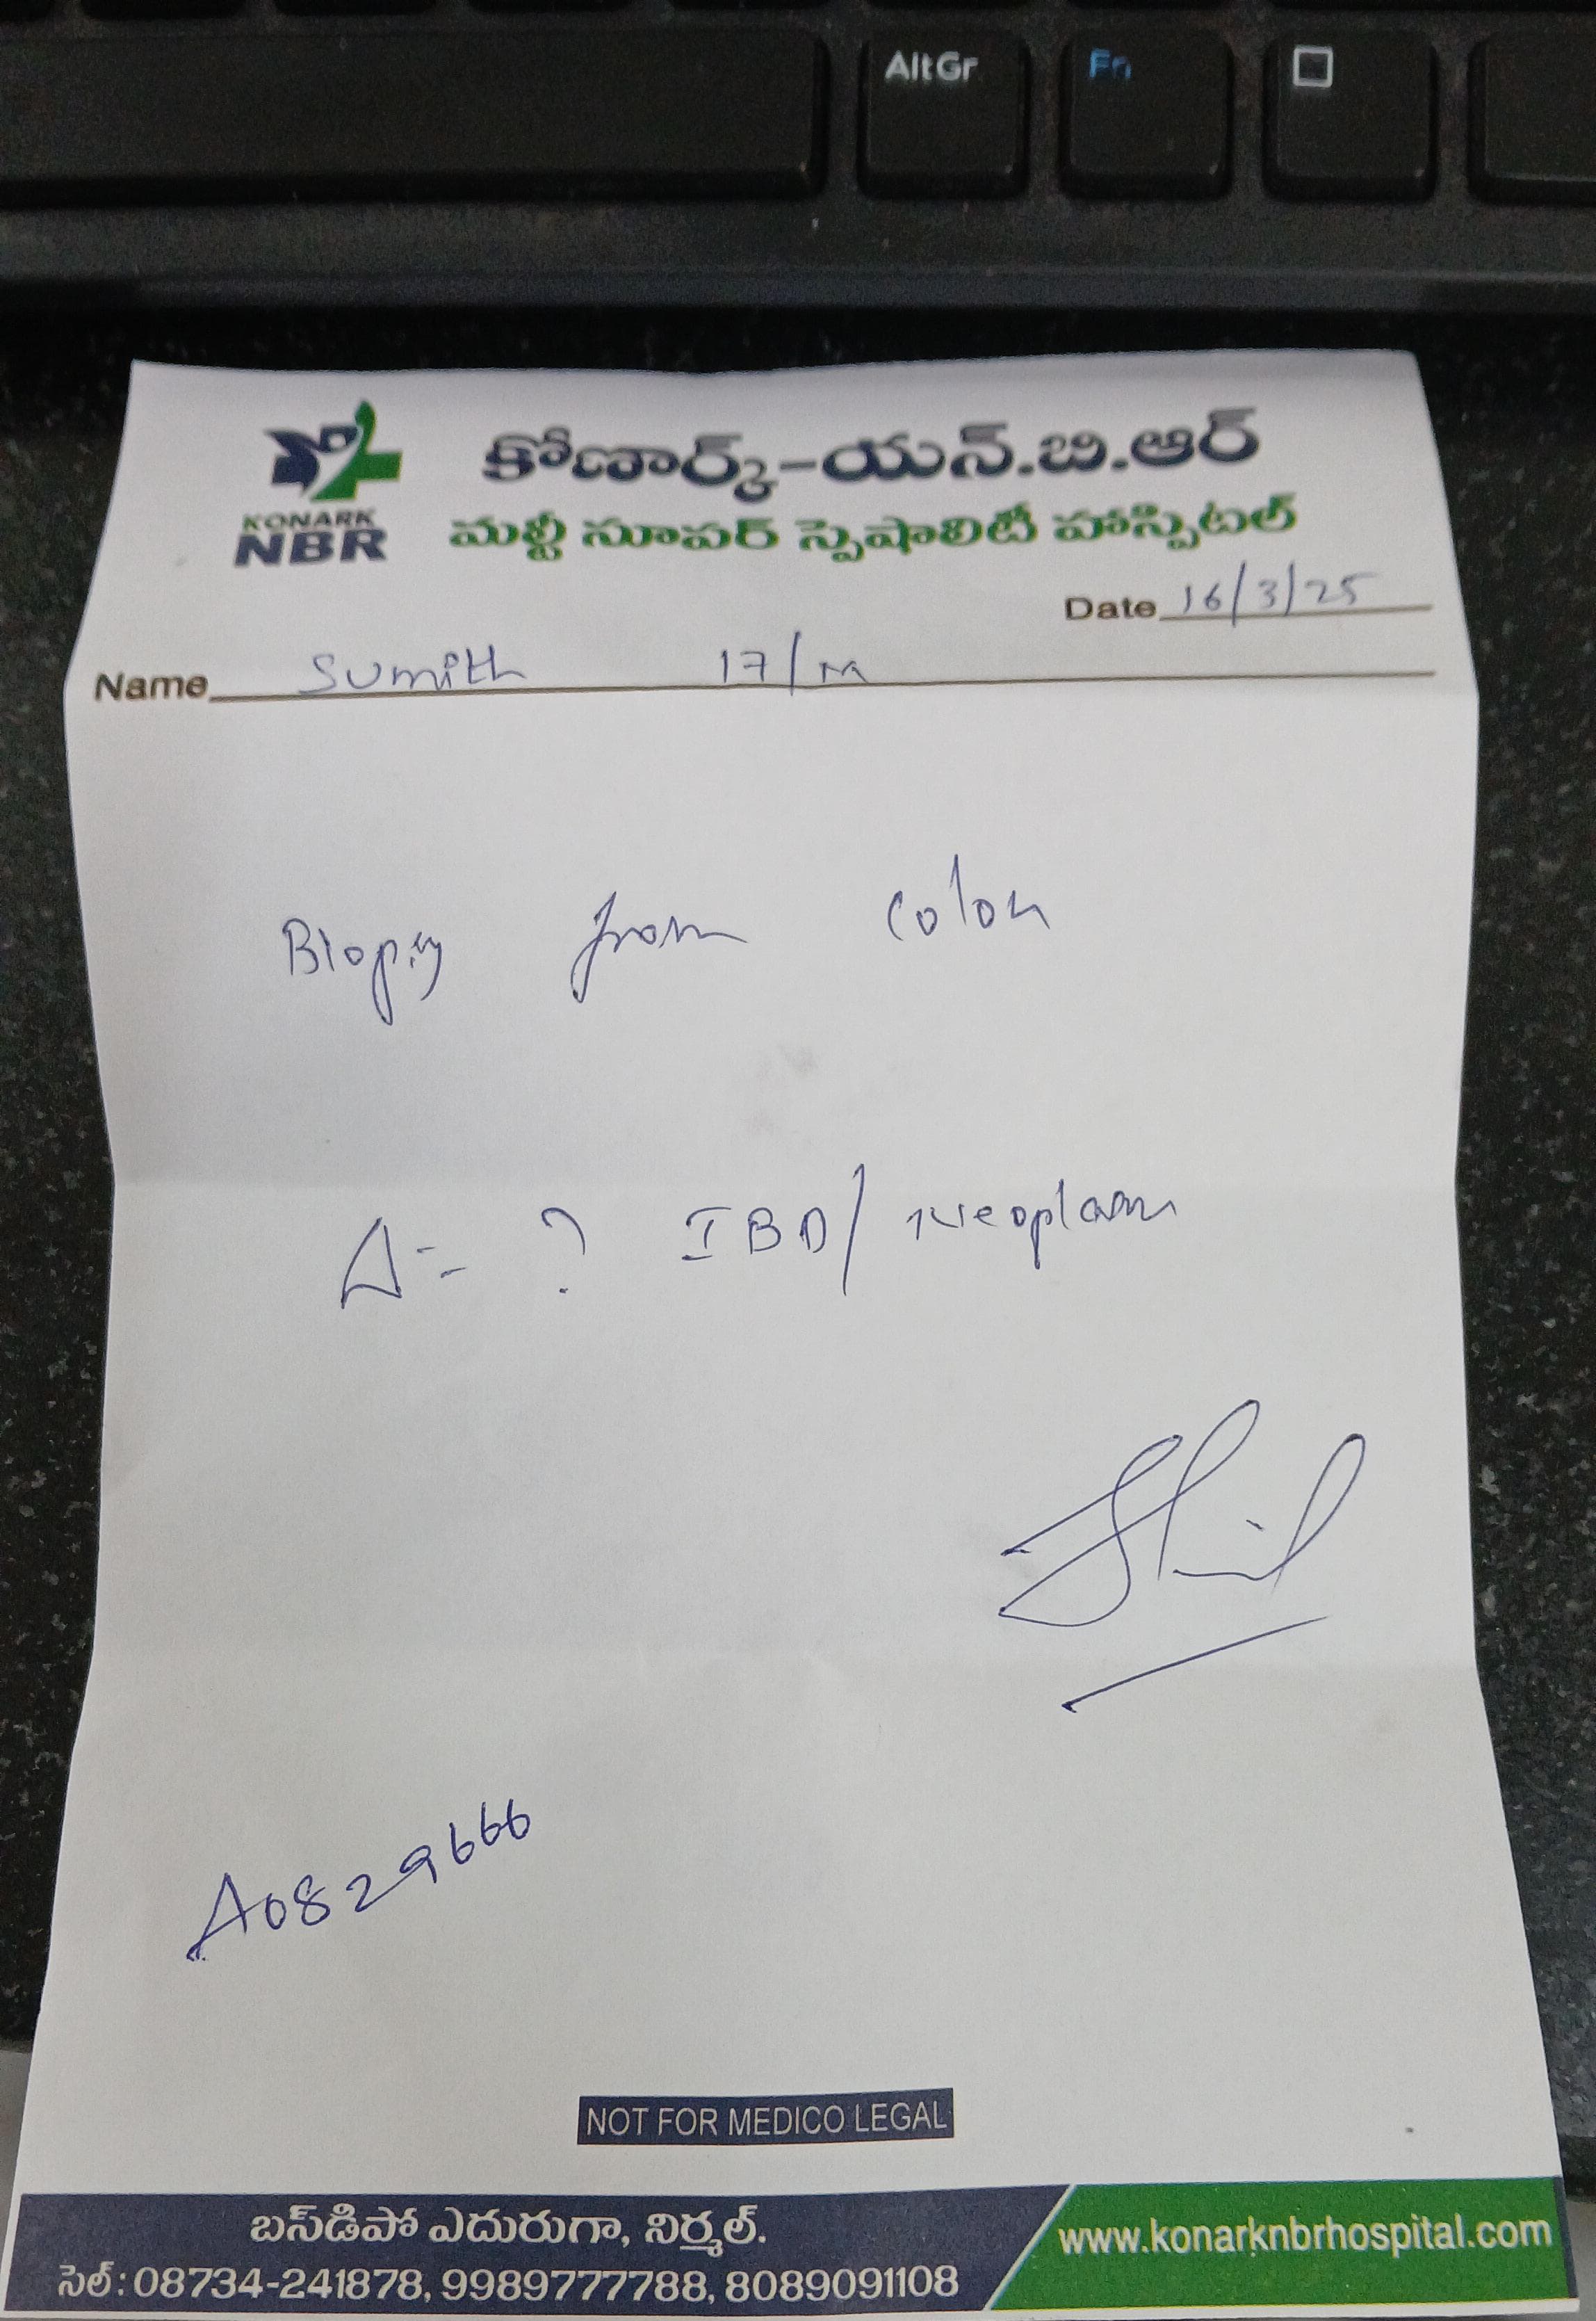 AltGr Fn
కోణార్క్-యన్.బి.ఆర్
KONARK
NBR
మల్టీ సూపర్ స్పెషాలిటీ హాస్పిటల్
Date 16/3/25
Name Sumith 17/M
Biopsy from colon
Δ= ? IBD/ Neoplasm
A0829666
NOT FOR MEDICO LEGAL
బస్‌డిపో ఎదురుగా, నిర్మల్.
సెల్ : 08734-241878, 9989777788, 8089091108
www.konarknbrhospital.com